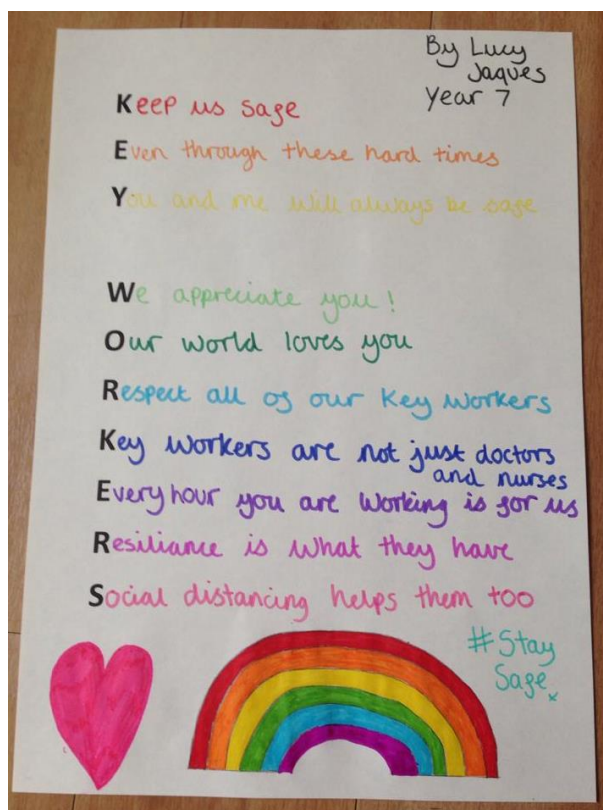 By Lucy
Jaques
Year 7
Keep us safe
Even through these hard times
You and me will always be safe
We appreciate you!
Our world loves you
Respect all of our Key workers
Key workers are not just doctors
and nurses
Every hour you are working is for us
Resiliance is what they have
Social distancing helps them too
#Stay
Safe x